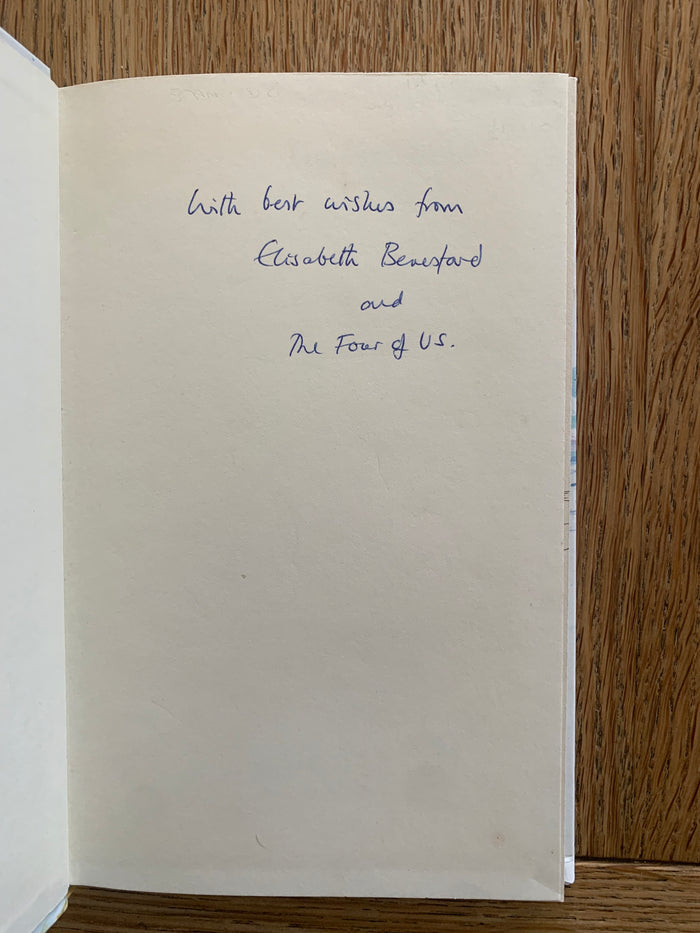 With best wishes from
Elisabeth Beresford
and
The Four of Us.